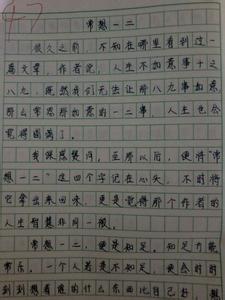 47
常想一二
很久之前，不知在哪里有到过一
篇文章，作者说，人生不如意事十之
八九，既然我们无法让那八九事如意
那么常想那如意的一二事，人生也会
觉得圆满了。
我深感赞同，至那以后，便将“常
想一二”这四个字记在心头，不时将
它拿出来回味，更是觉得那个作者的
人生智慧非同一般。
常想一二，便是知足，知足方能
常乐。一个人若是不知足，便会时时
刻刻想着